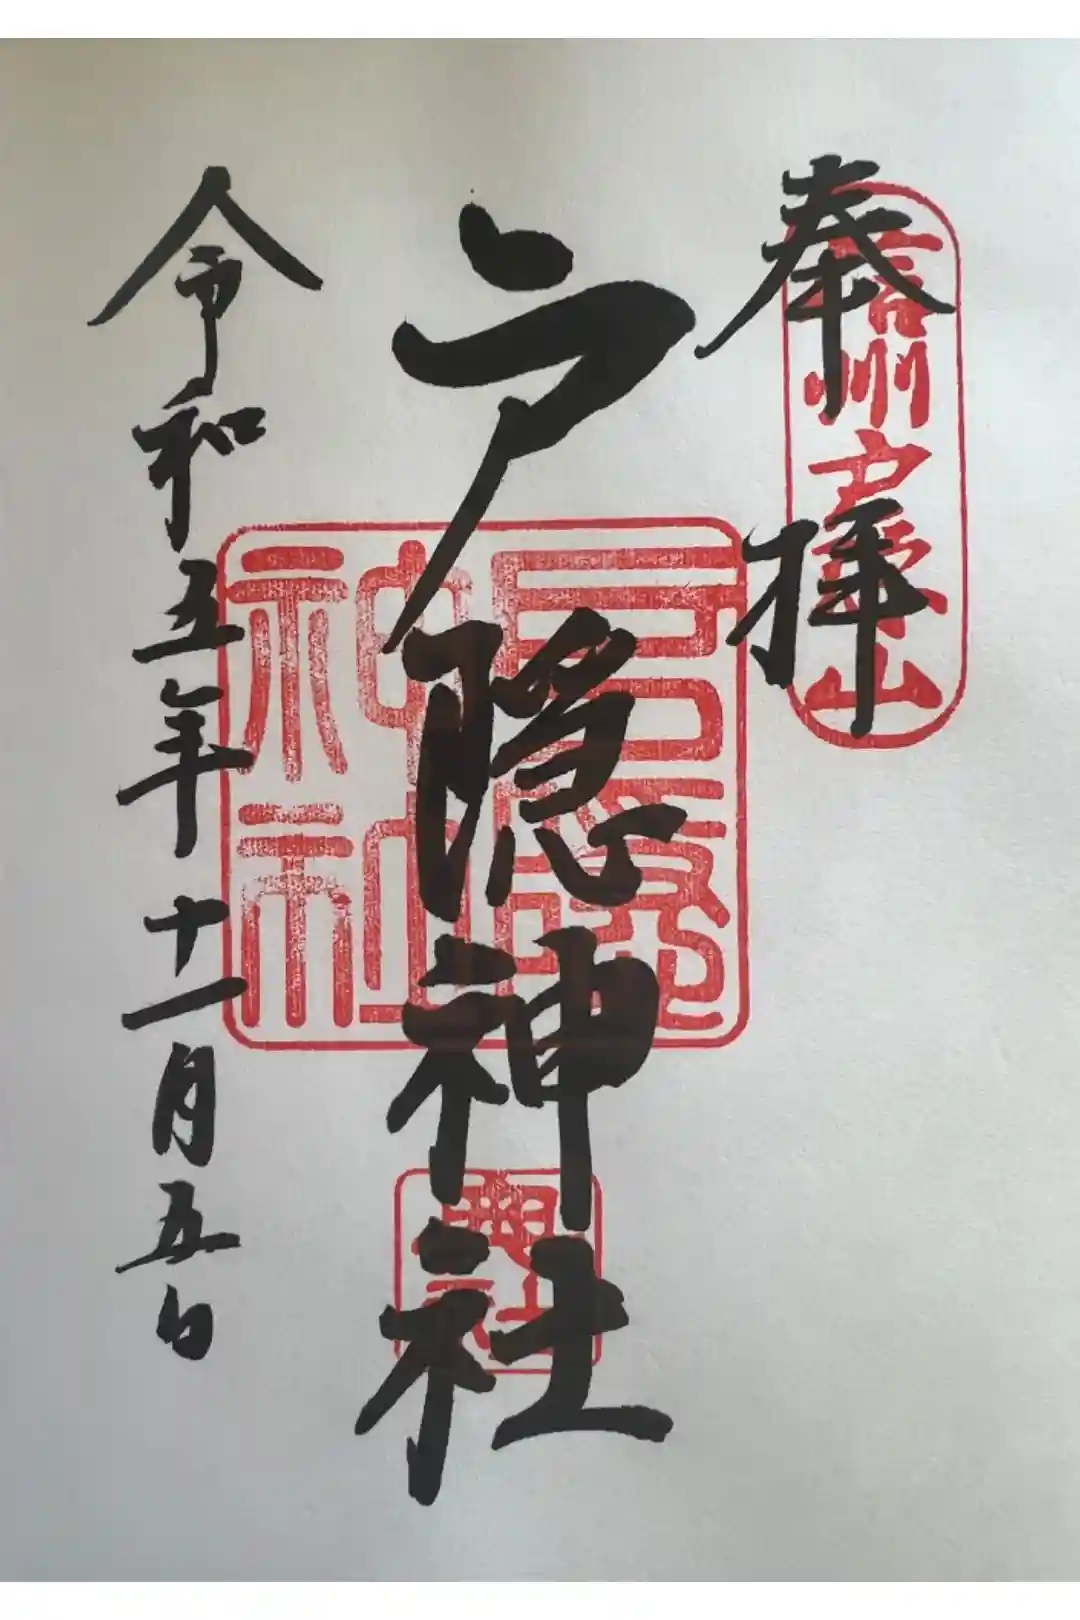 奉拝
信州戸隠山
戸隠神社
戸隠神社
令和五年十一月五日